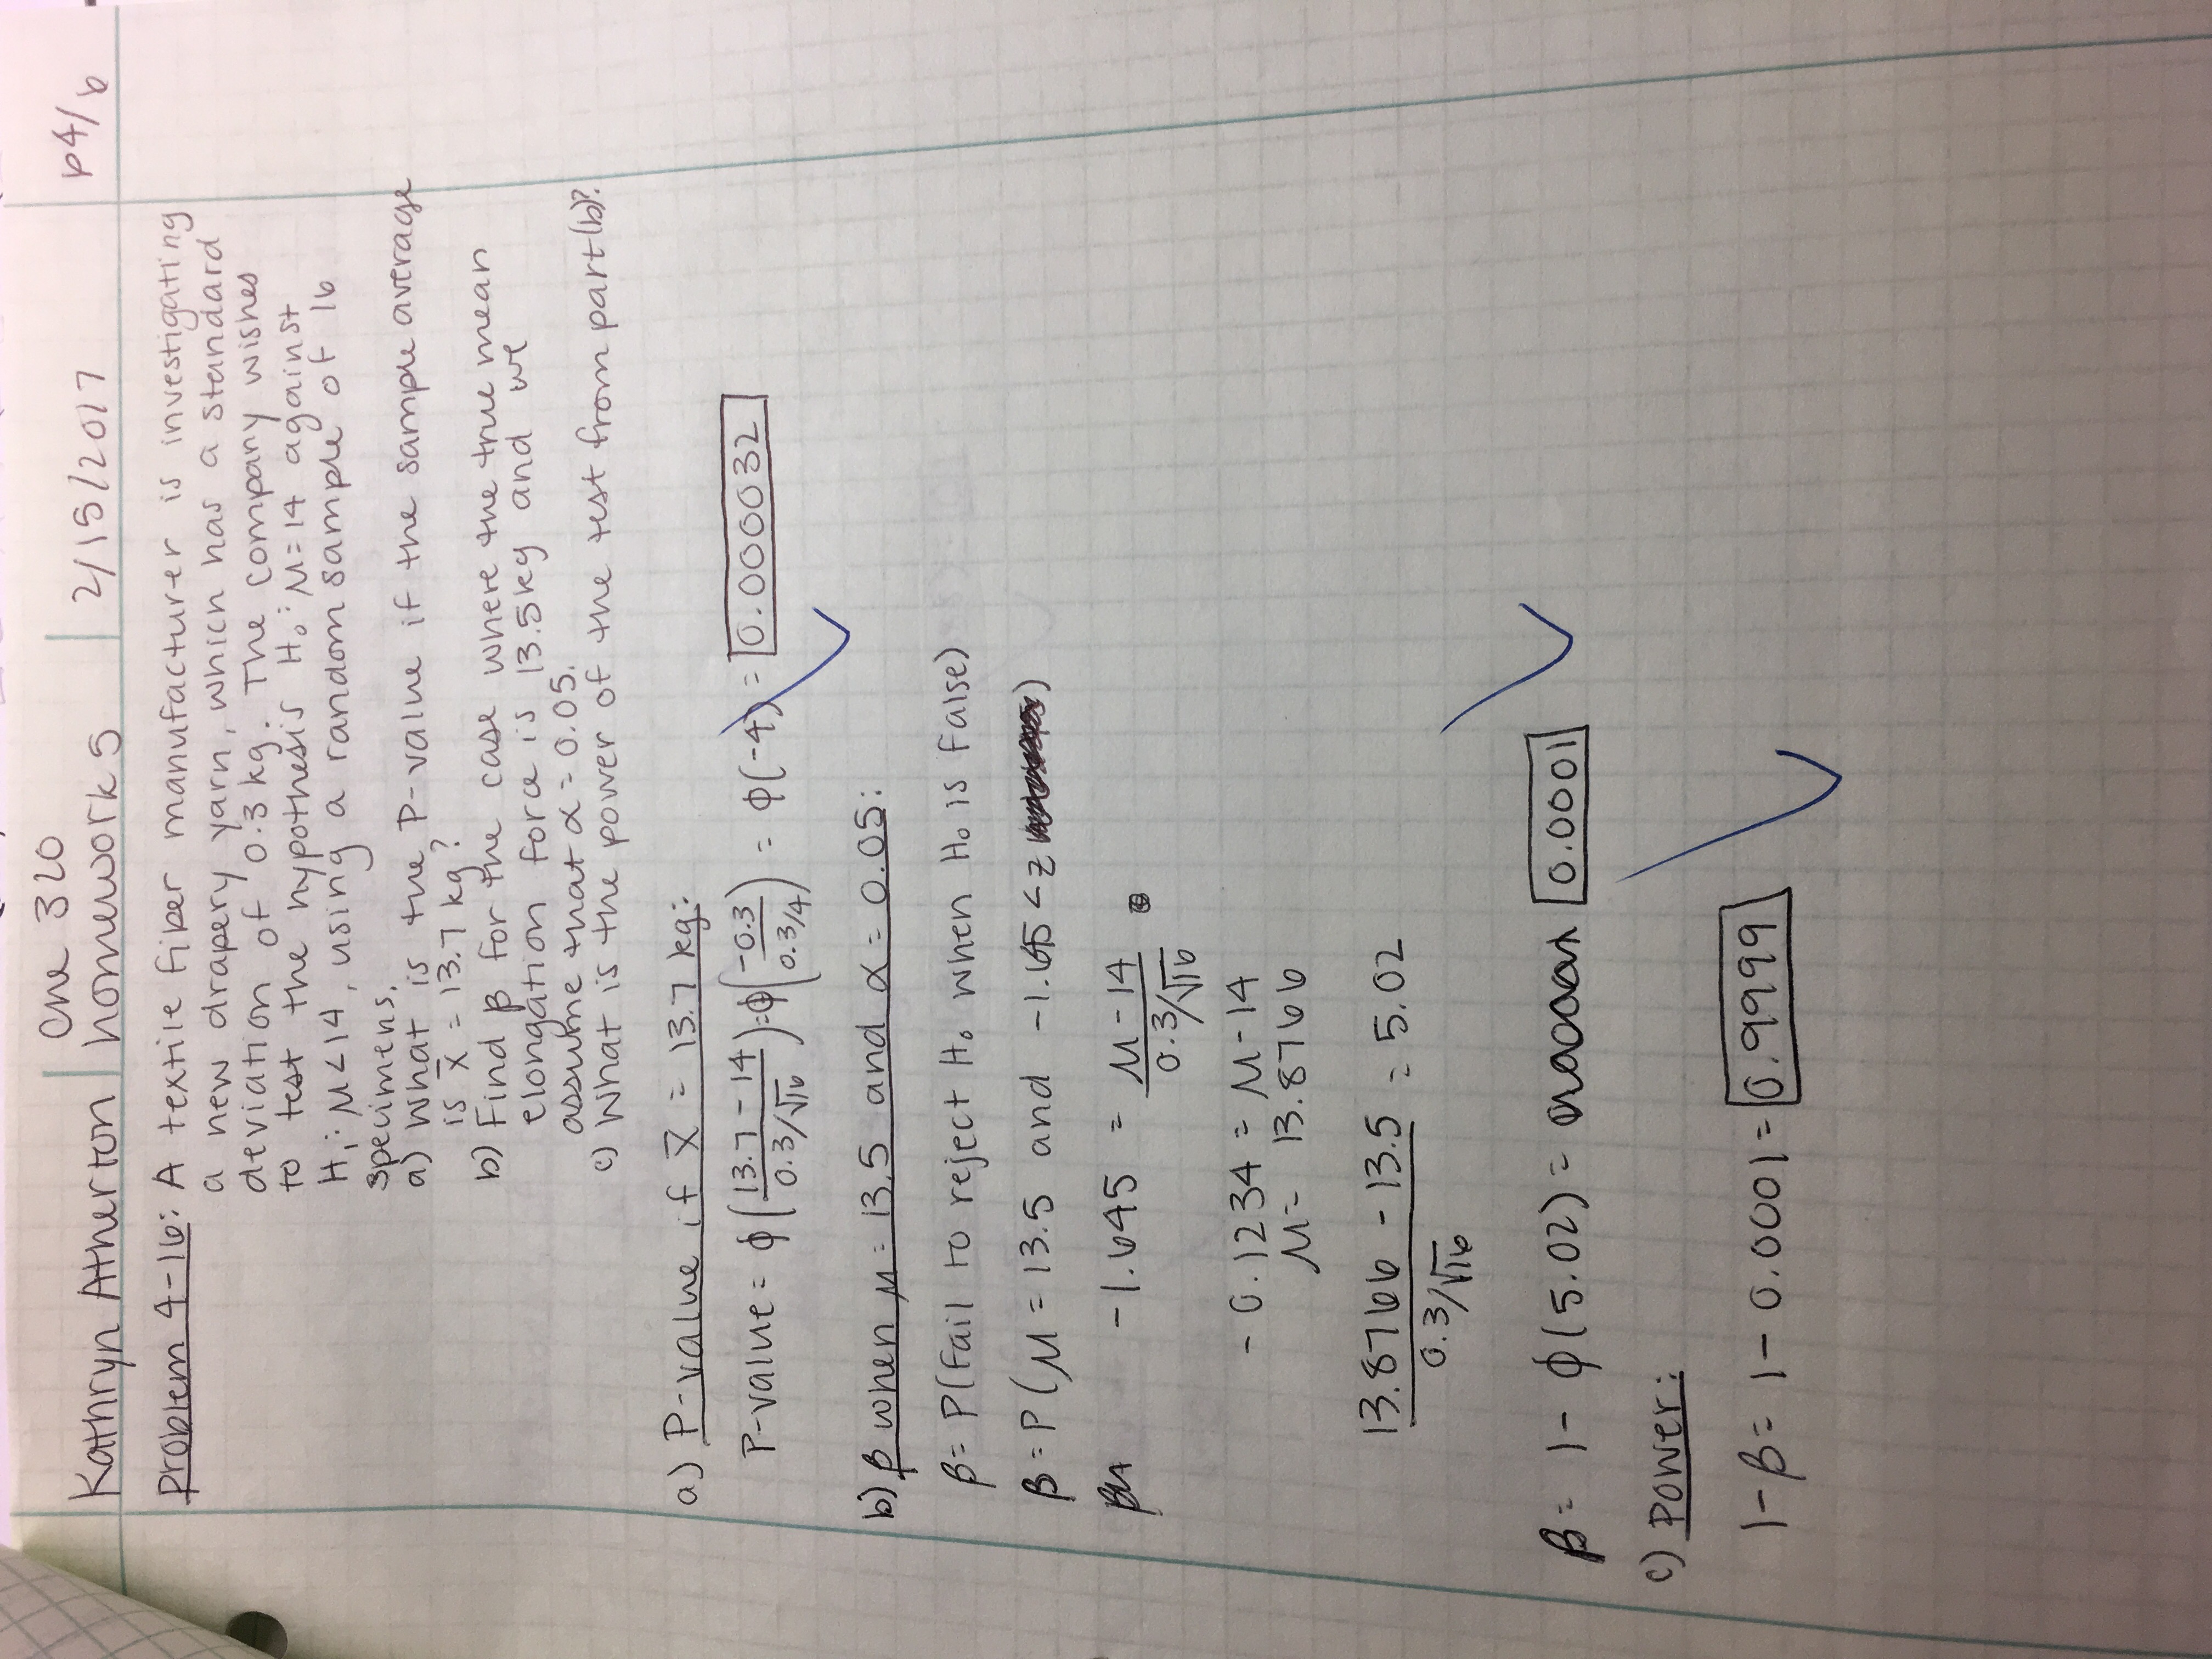 Kathryn Atherton
Che 320
homework 5
2/15/2017
p4/6
Problem 4-16: A textile fiber manufacturer is investigating
a new drapery yarn, which has a standard
deviation of 0.3 kg. The company wishes
to test the hypothesis H₀: μ=14 against
H₁: μ<14, using a random sample of 16
specimens.
a) What is the P-value if the sample average
is x̄ = 13.7 kg?
b) Find β for the case where the true mean
elongation force is 13.5kg and we
assume that α = 0.05.
c) What is the power of the test from part (b)?
a) P-value if x̄ = 13.7 kg:
P-value = ϕ(13.7 - 14 / 0.3/√16) = ϕ(-0.3 / 0.3/4) = ϕ(-4) = 0.000032
b) β when μ = 13.5 and α = 0.05:
β = P(fail to reject H₀ when H₀ is false)
β = P(μ = 13.5 and -1.645 < z)
-1.645 = μ - 14 / 0.3/√16
- 0.1234 = μ - 14
μ = 13.8766
13.8766 - 13.5 / 0.3/√16 = 5.02
β = 1 - ϕ(5.02) = 0.0001
c) Power:
1-β = 1 - 0.0001 = 0.9999